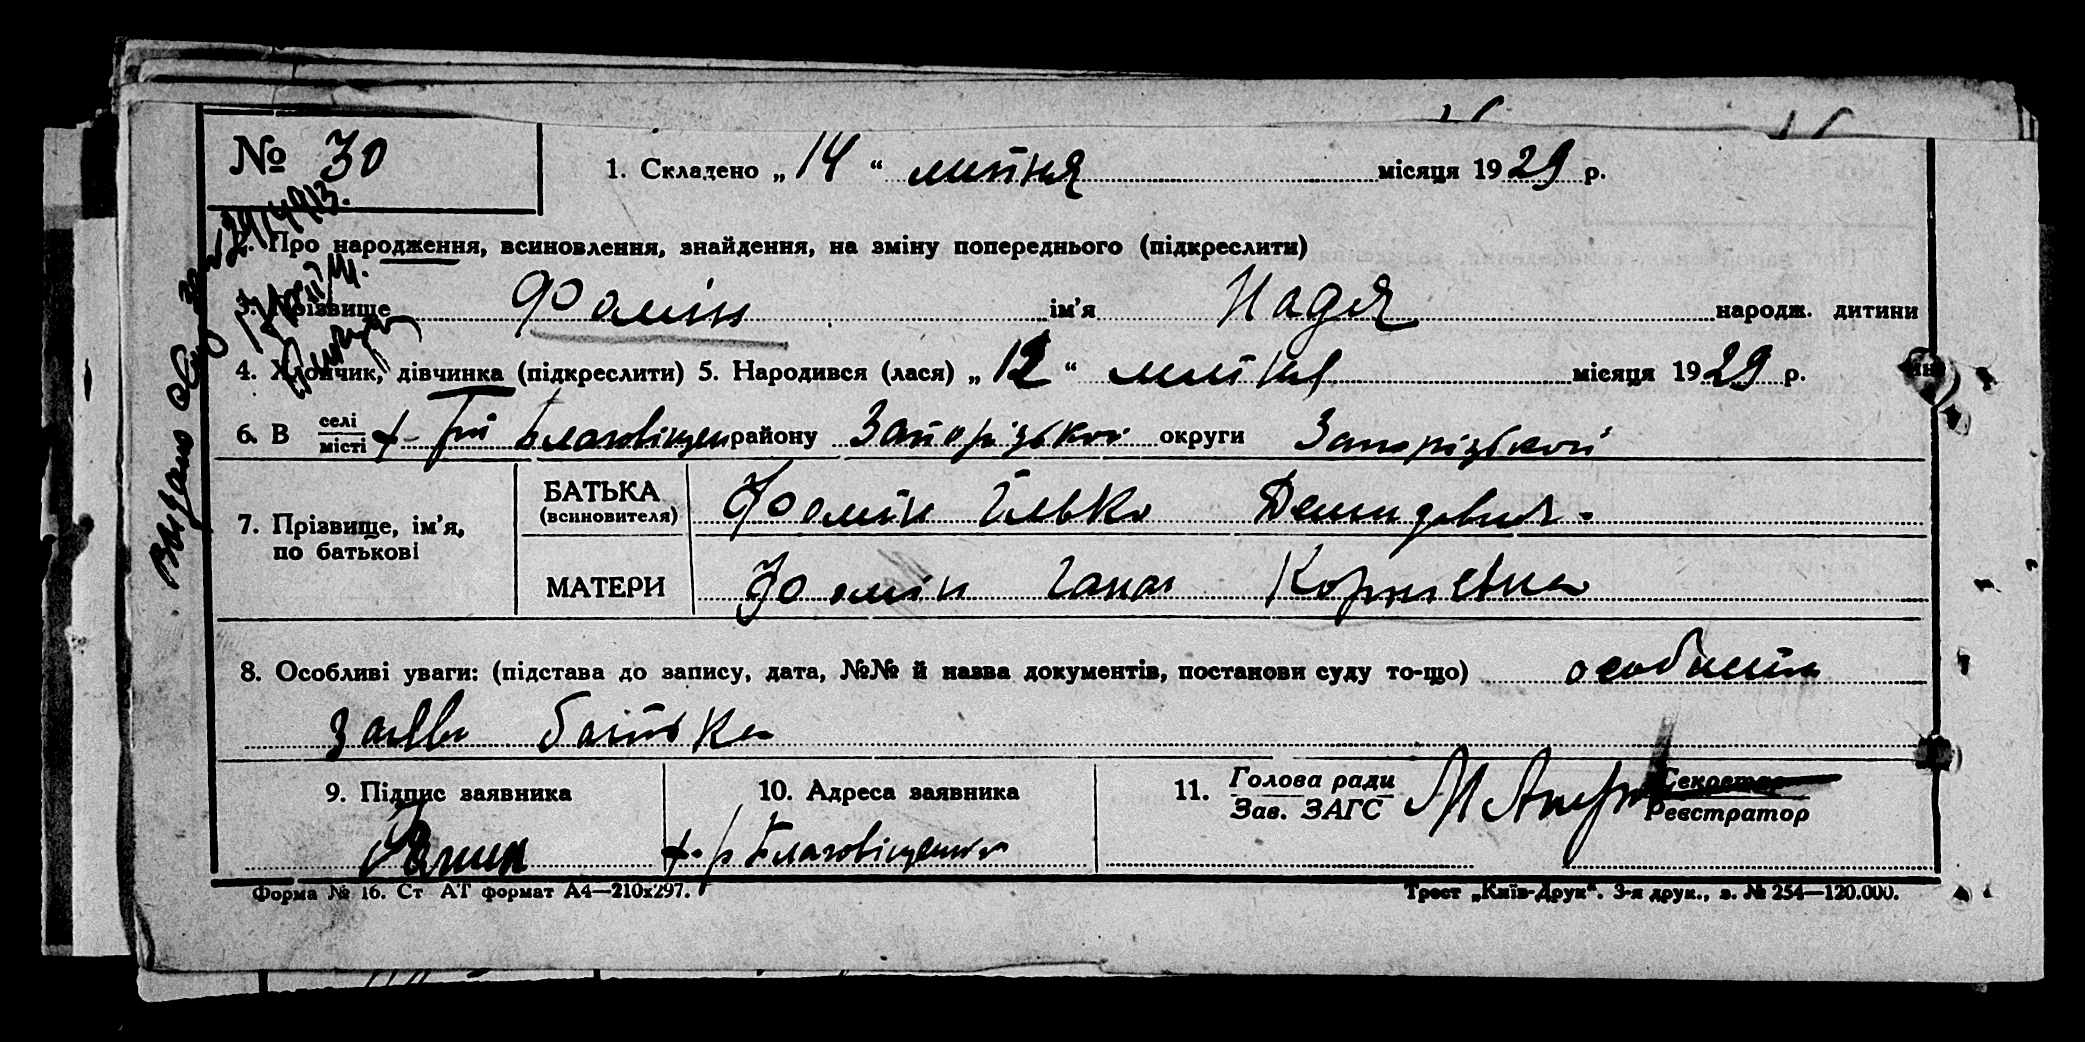 № 30
1. Складено „ 14 “ липня місяця 1929 р.
2. Про народження, всиновлення, знайдення, на зміну попереднього (підкреслити)
3. Прізвище Фомін ім’я Надя народж. дитини
4. Хлопчик, дівчинка (підкреслити) 5. Народився (лася) „ 12 “ липня місяця 1929 р.
6. В селі місті Благовіщен району Запорізького округи Запорізької
7. Прізвище, ім’я, по батькові
БАТЬКА (всиновителя) Фомін Ілько Демидович
МАТЕРИ Фомін Ганна Корніївна
8. Особливі уваги: (підстава до запису, дата, №№ й назва документів, постанови суду то-що) особиста
заява батька
9. Підпис заявника
10. Адреса заявника
11. Голова ради Зав. ЗАГС
Секретар Реєстратор
Фомин
Благовіщенка
Форма № 16. Ст АТ формат А4—210х297.
Трест „Київ-Друк“. 3-я друк., з. № 254—120.000.
Видано